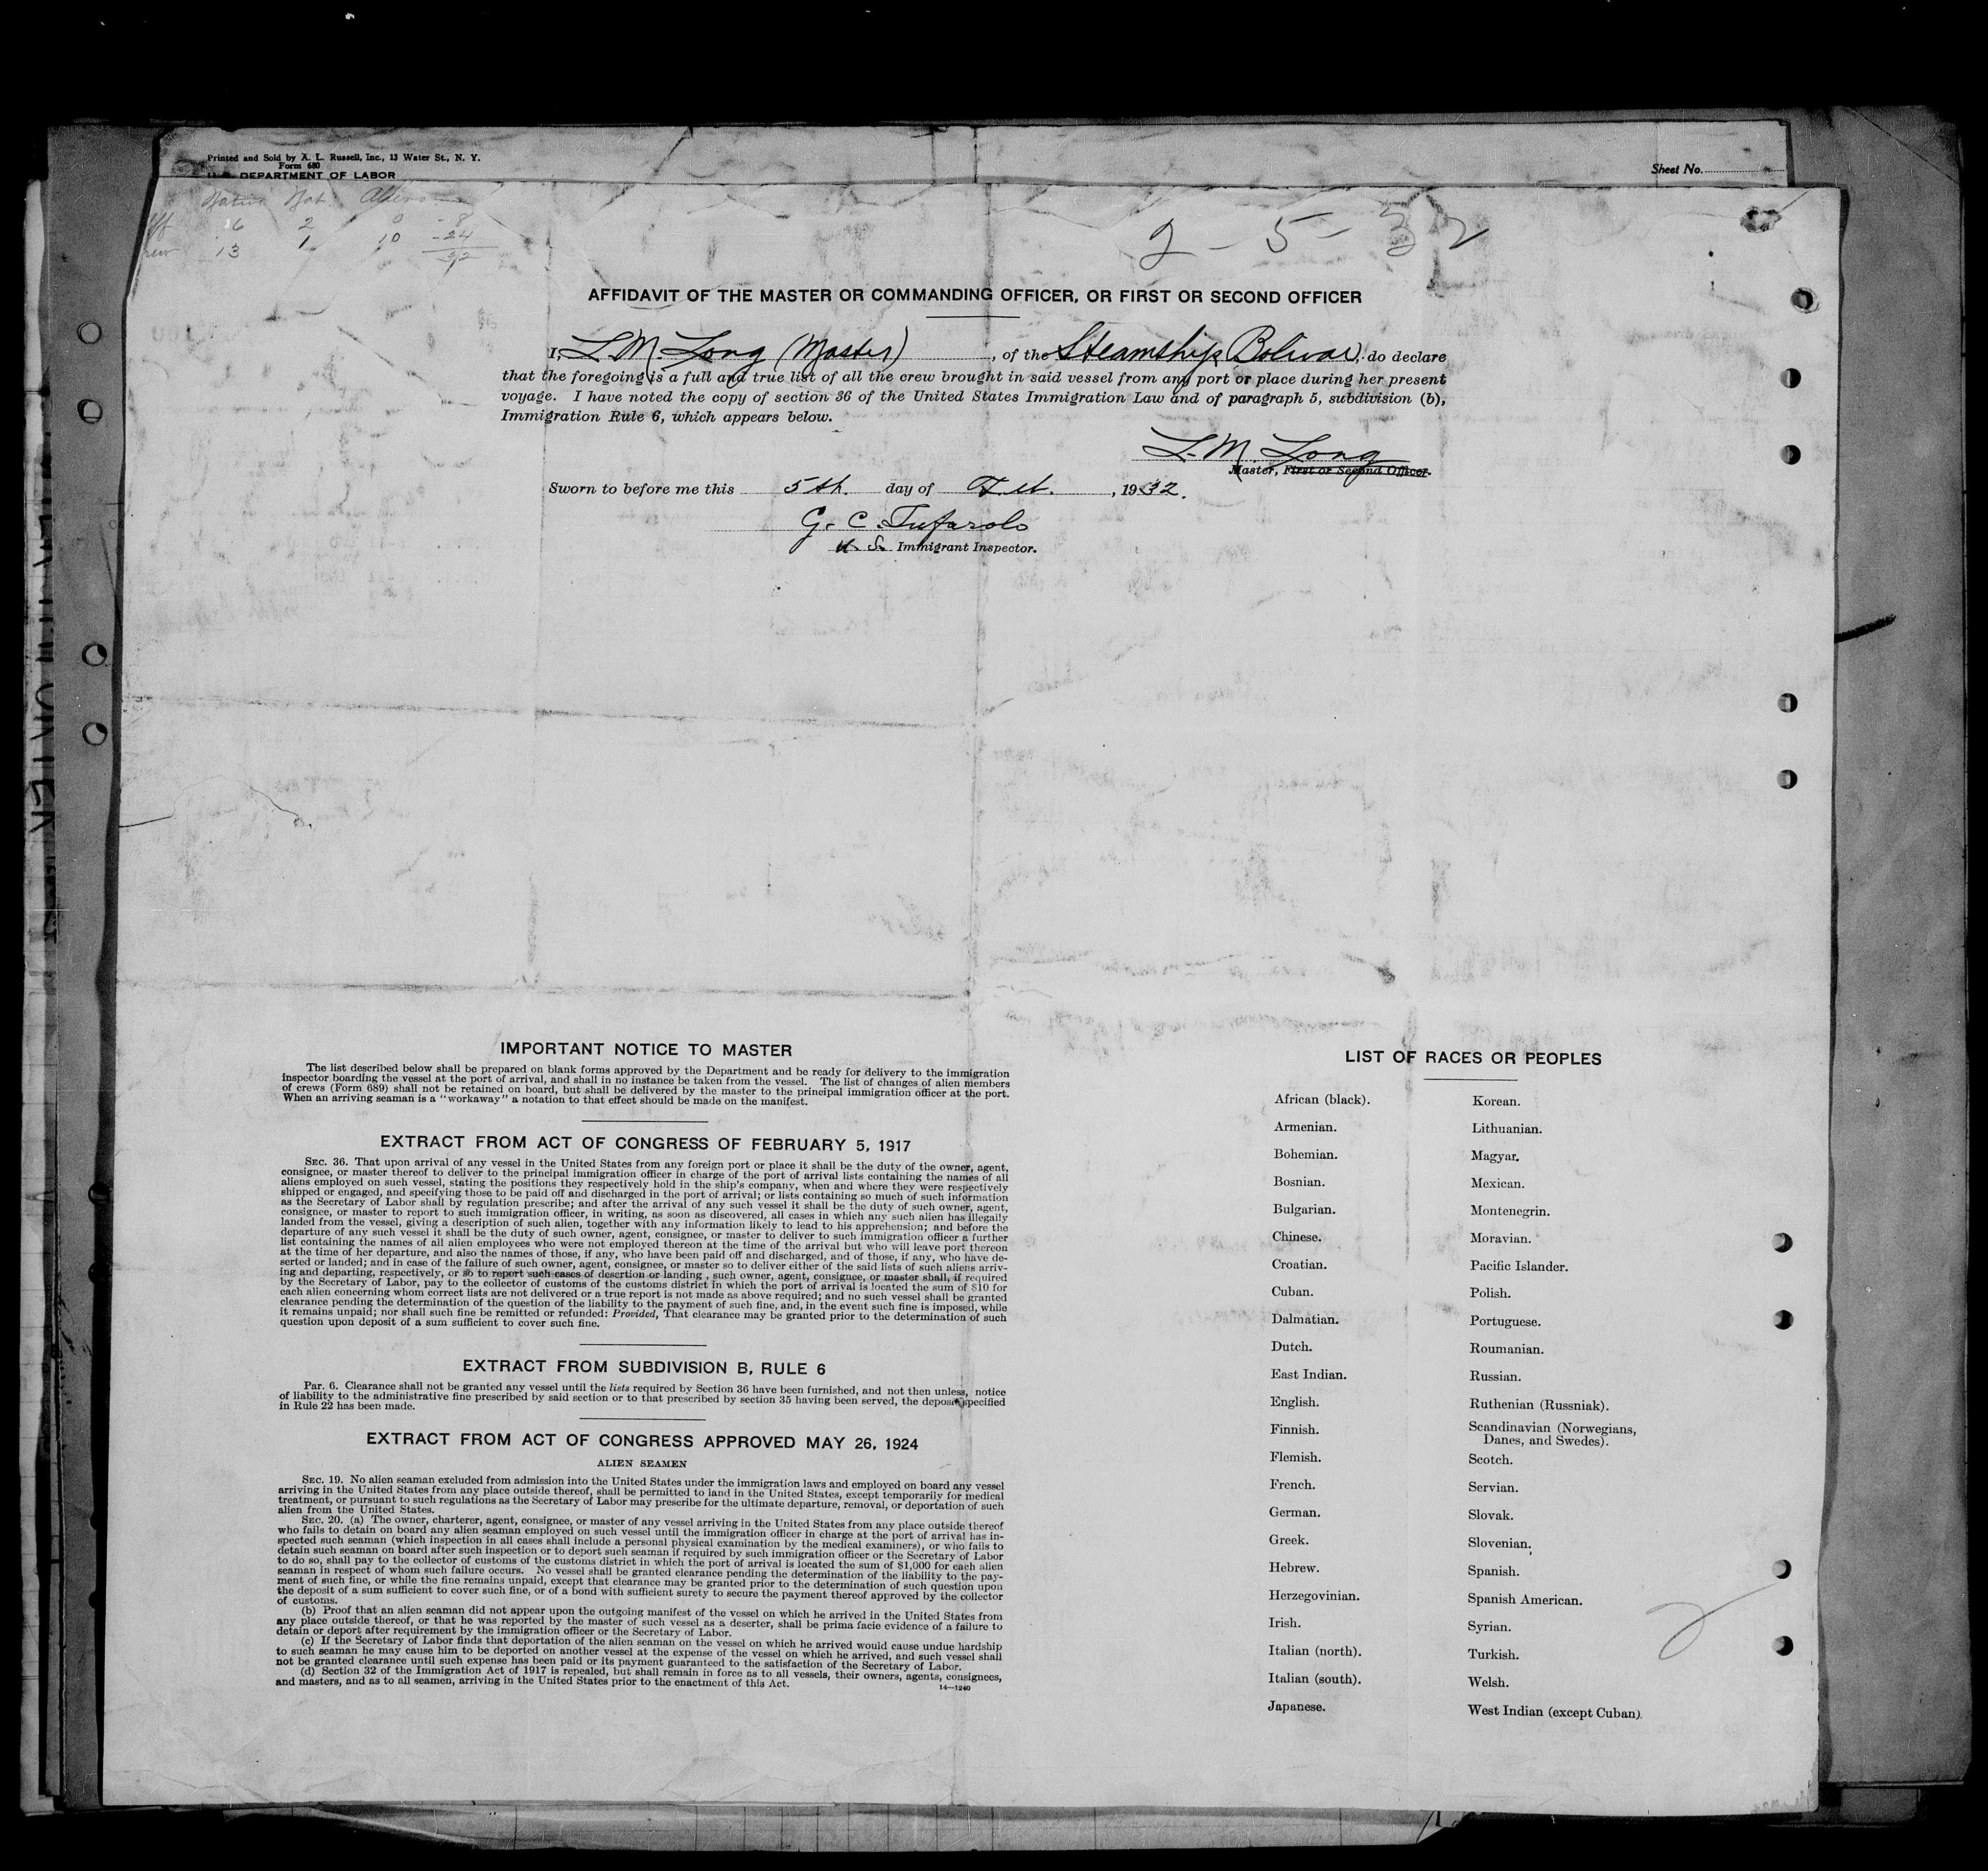 Printed and Sold by A. L. Russell, Inc., 13 Water St., N. Y.
Form 680
U. S. DEPARTMENT OF LABOR
Sheet No.
Native Nat Aliens
Off 6 2 0 - 8
Crew 13 1 10 - 24
32
2 - 5 - 32
AFFIDAVIT OF THE MASTER OR COMMANDING OFFICER, OR FIRST OR SECOND OFFICER
I, L. M. Long (Master), of the Steamship Bolivar, do declare
that the foregoing is a full and true list of all the crew brought in said vessel from any port or place during her present
voyage. I have noted the copy of section 36 of the United States Immigration Law and of paragraph 5, subdivision (b),
Immigration Rule 6, which appears below.
L. M. Long
Master, First or Second Officer.
Sworn to before me this 5th. day of Feb. , 1932.
G. C. Tufarolo
U. S. Immigrant Inspector.
IMPORTANT NOTICE TO MASTER
The list described below shall be prepared on blank forms approved by the Department and be ready for delivery to the immigration
inspector boarding the vessel at the port of arrival, and shall in no instance be taken from the vessel. The list of changes of alien members
of crews (Form 689) shall not be retained on board, but shall be delivered by the master to the principal immigration officer at the port.
When an arriving seaman is a "workaway" a notation to that effect should be made on the manifest.
EXTRACT FROM ACT OF CONGRESS OF FEBRUARY 5, 1917
SEC. 36. That upon arrival of any vessel in the United States from any foreign port or place it shall be the duty of the owner, agent,
consignee, or master thereof to deliver to the principal immigration officer in charge of the port of arrival lists containing the names of all
aliens employed on such vessel, stating the positions they respectively hold in the ship's company, when and where they were respectively
shipped or engaged, and specifying those to be paid off and discharged in the port of arrival; or lists containing so much of such information
as the Secretary of Labor shall by regulation prescribe; and after the arrival of any such vessel it shall be the duty of such owner, agent,
consignee, or master to report to such immigration officer, in writing, as soon as discovered, all cases in which any such alien has illegally
landed from the vessel, giving a description of such alien, together with any information likely to lead to his apprehension; and before the
departure of any such vessel it shall be the duty of such owner, agent, consignee, or master to deliver to such immigration officer a further
list containing the names of all alien employees who were not employed thereon at the time of the arrival but who will leave port thereon
at the time of her departure, and also the names of those, if any, who have been paid off and discharged, and of those, if any, who have de-
serted or landed; and in case of the failure of such owner, agent, consignee, or master so to deliver either of the said lists of such aliens arriv-
ing and departing, respectively, or so to report such cases of desertion or landing , such owner, agent, consignee, or master shall, if required
by the Secretary of Labor, pay to the collector of customs of the customs district in which the port of arrival is located the sum of $10 for
each alien concerning whom correct lists are not delivered or a true report is not made as above required; and no such vessel shall be granted
clearance pending the determination of the question of the liability to the payment of such fine, and, in the event such fine is imposed, while
it remains unpaid; nor shall such fine be remitted or refunded: Provided, That clearance may be granted prior to the determination of such
question upon deposit of a sum sufficient to cover such fine.
EXTRACT FROM SUBDIVISION B, RULE 6
Par. 6. Clearance shall not be granted any vessel until the lists required by Section 36 have been furnished, and not then unless, notice
of liability to the administrative fine prescribed by said section or to that prescribed by section 35 having been served, the deposit specified
in Rule 22 has been made.
EXTRACT FROM ACT OF CONGRESS APPROVED MAY 26, 1924
ALIEN SEAMEN
SEC. 19. No alien seaman excluded from admission into the United States under the immigration laws and employed on board any vessel
arriving in the United States from any place outside thereof, shall be permitted to land in the United States, except temporarily for medical
treatment, or pursuant to such regulations as the Secretary of Labor may prescribe for the ultimate departure, removal, or deportation of such
alien from the United States.
SEC. 20. (a) The owner, charterer, agent, consignee, or master of any vessel arriving in the United States from any place outside thereof
who fails to detain on board any alien seaman employed on such vessel until the immigration officer in charge at the port of arrival has in-
spected such seaman (which inspection in all cases shall include a personal physical examination by the medical examiners), or who fails to
detain such seaman on board after such inspection or to deport such seaman if required by such immigration officer or the Secretary of Labor
to do so, shall pay to the collector of customs of the customs district in which the port of arrival is located the sum of $1,000 for each alien
seaman in respect of whom such failure occurs. No vessel shall be granted clearance pending the determination of the liability to the pay-
ment of such fine, or while the fine remains unpaid, except that clearance may be granted prior to the determination of such question upon
the deposit of a sum sufficient to cover such fine, or of a bond with sufficient surety to secure the payment thereof approved by the collector
of customs.
(b) Proof that an alien seaman did not appear upon the outgoing manifest of the vessel on which he arrived in the United States from
any place outside thereof, or that he was reported by the master of such vessel as a deserter, shall be prima facie evidence of a failure to
detain or deport after requirement by the immigration officer or the Secretary of Labor.
(c) If the Secretary of Labor finds that deportation of the alien seaman on the vessel on which he arrived would cause undue hardship
to such seaman he may cause him to be deported on another vessel at the expense of the vessel on which he arrived, and such vessel shall
not be granted clearance until such expense has been paid or its payment guaranteed to the satisfaction of the Secretary of Labor.
(d) Section 32 of the Immigration Act of 1917 is repealed, but shall remain in force as to all vessels, their owners, agents, consignees,
and masters, and as to all seamen, arriving in the United States prior to the enactment of this Act.
14—1240
LIST OF RACES OR PEOPLES
African (black).
Armenian.
Bohemian.
Bosnian.
Bulgarian.
Chinese.
Croatian.
Cuban.
Dalmatian.
Dutch.
East Indian.
English.
Finnish.
Flemish.
French.
German.
Greek.
Hebrew.
Herzegovinian.
Irish.
Italian (north).
Italian (south).
Japanese.
Korean.
Lithuanian.
Magyar.
Mexican.
Montenegrin.
Moravian.
Pacific Islander.
Polish.
Portuguese.
Roumanian.
Russian.
Ruthenian (Russniak).
Scandinavian (Norwegians,
Danes, and Swedes).
Scotch.
Servian.
Slovak.
Slovenian.
Spanish.
Spanish American.
Syrian.
Turkish.
Welsh.
West Indian (except Cuban).
2